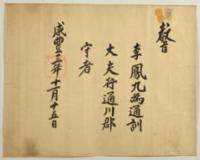 教旨
李鳳九爲通訓
大夫行通川郡
守者
咸豊三年十一月十五日